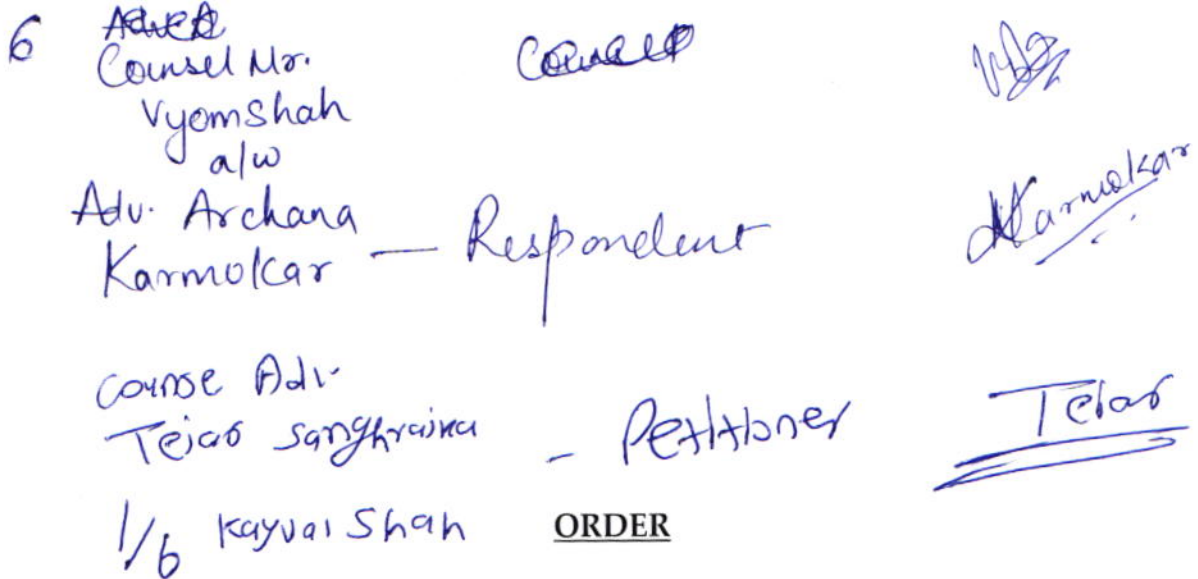 6
Counsel Mr.
Vyom Shah
a/w
Adv. Archana
Karmokar — Respondent
Karmokar
Counse Adv.
Tejas Sanghrajka - Petitioner Tejas
1/6 Kayval Shah
ORDER